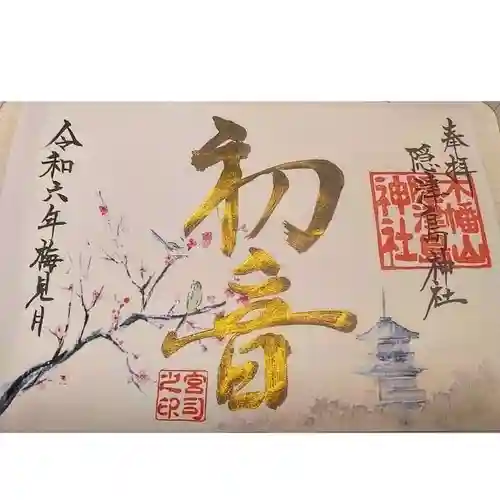 奉拝
隠津島神社
木幡山
隠津島
神社
初音
宮司
之印
令和六年梅見月